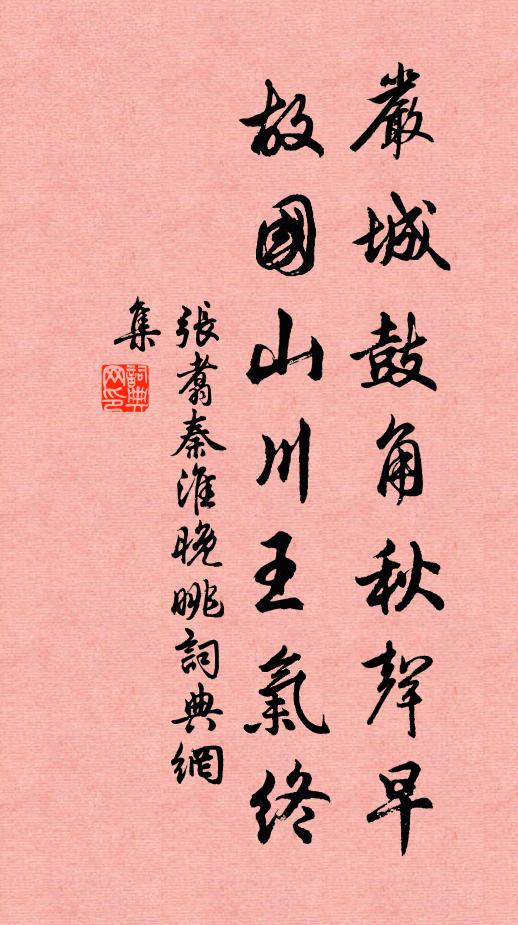 嚴城鼓角秋聲早
故國山川王氣終
張翥秦淮晚眺詞典網
集
詞典
网印